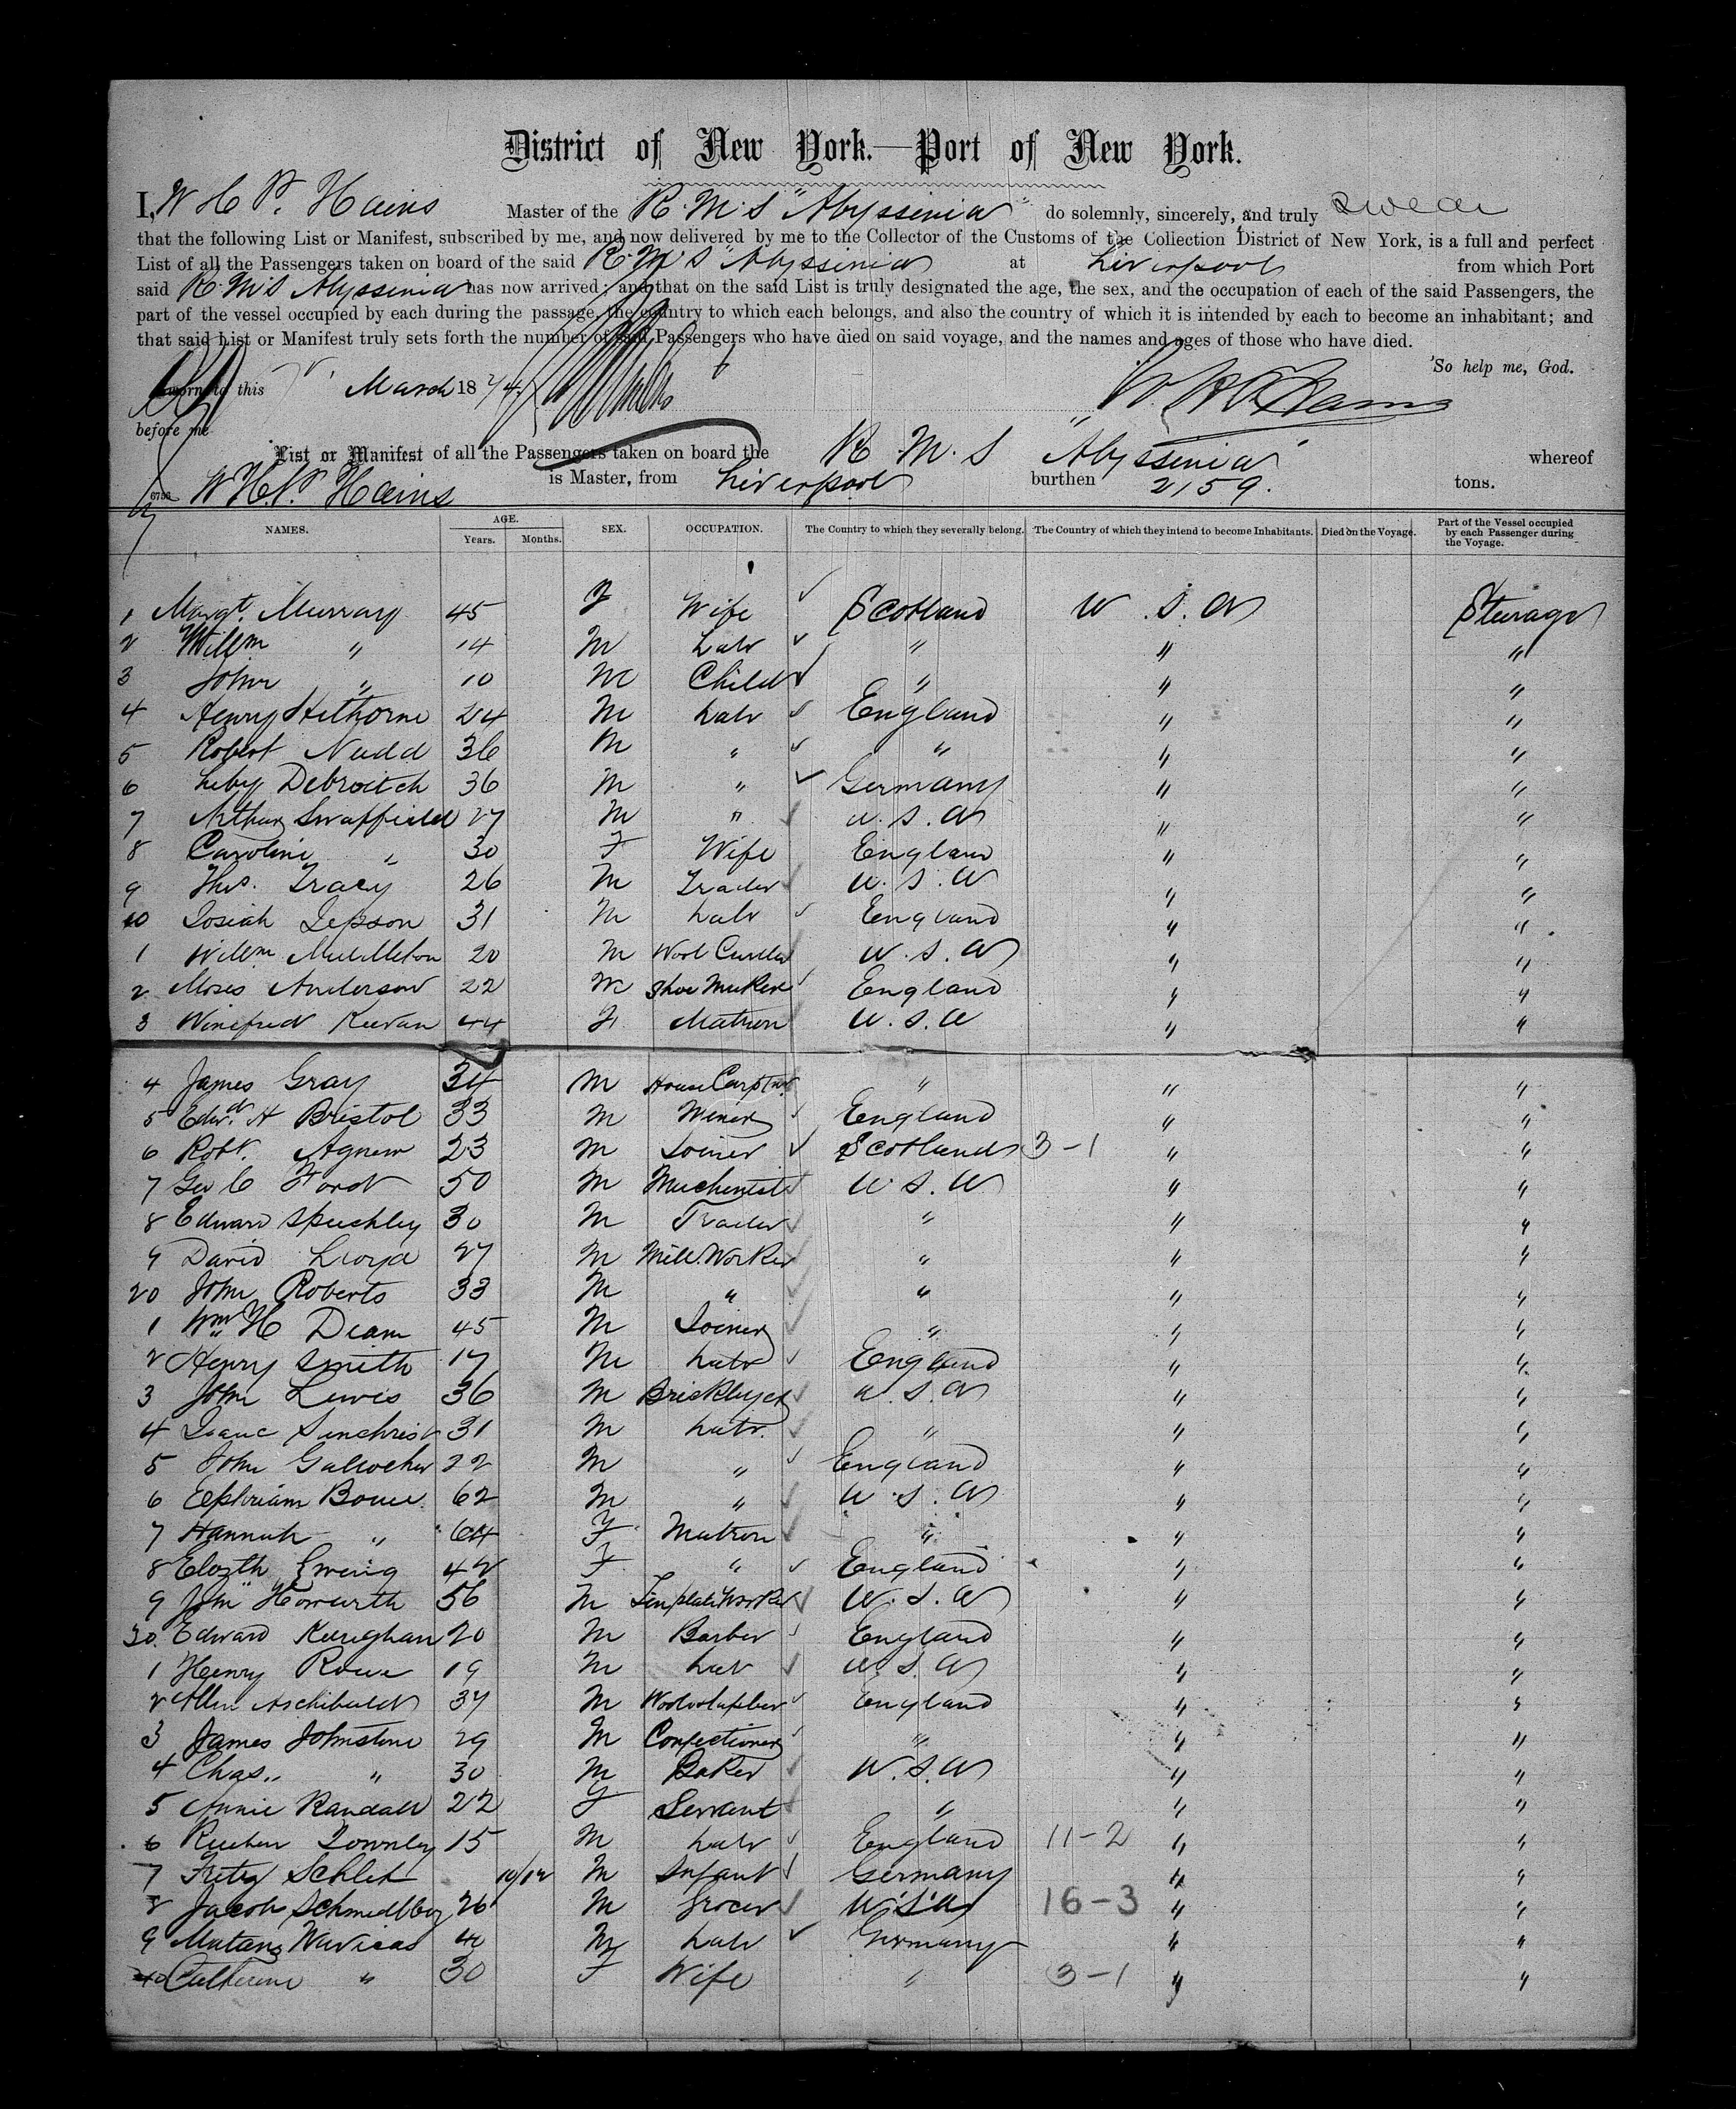 District of New York.—Port of New York.
I, W H P. Hains Master of the R.M.S "Abyssinia" do solemnly, sincerely, and truly swear
that the following List or Manifest, subscribed by me, and now delivered by me to the Collector of the Customs of the Collection District of New York, is a full and perfect
List of all the Passengers taken on board of the said R.M.S "Abyssinia at Liverpool from which Port
said R.M.S Abyssinia has now arrived; and that on the said List is truly designated the age, the sex, and the occupation of each of the said Passengers, the
part of the vessel occupied by each during the passage, the country to which each belongs, and also the country of which it is intended by each to become an inhabitant; and
that said List or Manifest truly sets forth the number of said Passengers who have died on said voyage, and the names and ages of those who have died.
So help me, God.
Sworn to this March 1874 W. H. P. Hains
before me
List or Manifest of all the Passengers taken on board the R. M. S "Abyssinia" whereof
W H P. Hains is Master, from Liverpool burthen 2159. tons.
NAMES. AGE. Years. Months. SEX. OCCUPATION. The Country to which they severally belong. The Country of which they intend to become Inhabitants. Died on the Voyage. Part of the Vessel occupied by each Passenger during the Voyage.
1 Margt. Murray 45 F Wife Scotland U.S.A Steerage
2 Willm " 14 M Labr " " "
3 John " 10 M Child " " "
4 Henry Hethorne 24 M Labr England " "
5 Robert Nudd 36 M " " " "
6 Leby Debroitch 36 M " Germany " "
7 Arthur Swaffield 27 M " U.S.A " "
8 Caroline " 30 F Wife England " "
9 Thos. Tracy 26 M Trader U.S.A " "
10 Josiah Jepson 31 M Labr England " "
1 Willm Middleton 20 M Wool U.S.A " "
2 Moses Anderson 22 M Shoe Maker England " "
3 Winefred Keevan 44 F Matron U.S.A " "
4 James Gray 34 M House Carptr " " "
5 Edwd. H Bristol 33 M Miner England " "
6 Robt. Agnew 23 M Joiner Scotland 3-1 " "
7 Geo C Ford 50 M Machinist U.S.A " "
8 Edward Speechley 30 M Trader " " "
9 David Lloyd 27 M Mill Worker " " "
20 John Roberts 33 M " " " "
1 Wm H Deam 45 M Joiner " " "
2 Henry Smith 17 M Labr England " "
3 John Lewis 36 M Bricklayer U.S.A " "
4 Isaac 31 M Labr. " " "
5 John Gallocher 22 M " England " "
6 Ephriam Bower 62 M " U.S.A " "
7 Hannah " 64 F Matron " " "
8 Elizth Ewing 42 F " England " "
9 Jno Howarth 56 M Tinplate Worker U.S.A " "
30. Edward Kereghan 20 M Barber England " "
1 Henry Rowe 19 M Labr U.S.A " "
2 Allen Archibald 37 M England " "
3 James Johnstone 29 M Confectioner " " "
4 Chas.. " 30 M Baker U.S.A " "
5 Annie Randall 22 F Servant " " "
6 Reuben Townley 15 M Labr England 11-2 " "
7 Fritz Schleh 10/12 M Infant Germany " "
8 Jacob 26 M Grocer U.S.A 16-3 " "
9 40 M Labr Germany " "
40 Catherine " 30 F Wife " 3-1 " "